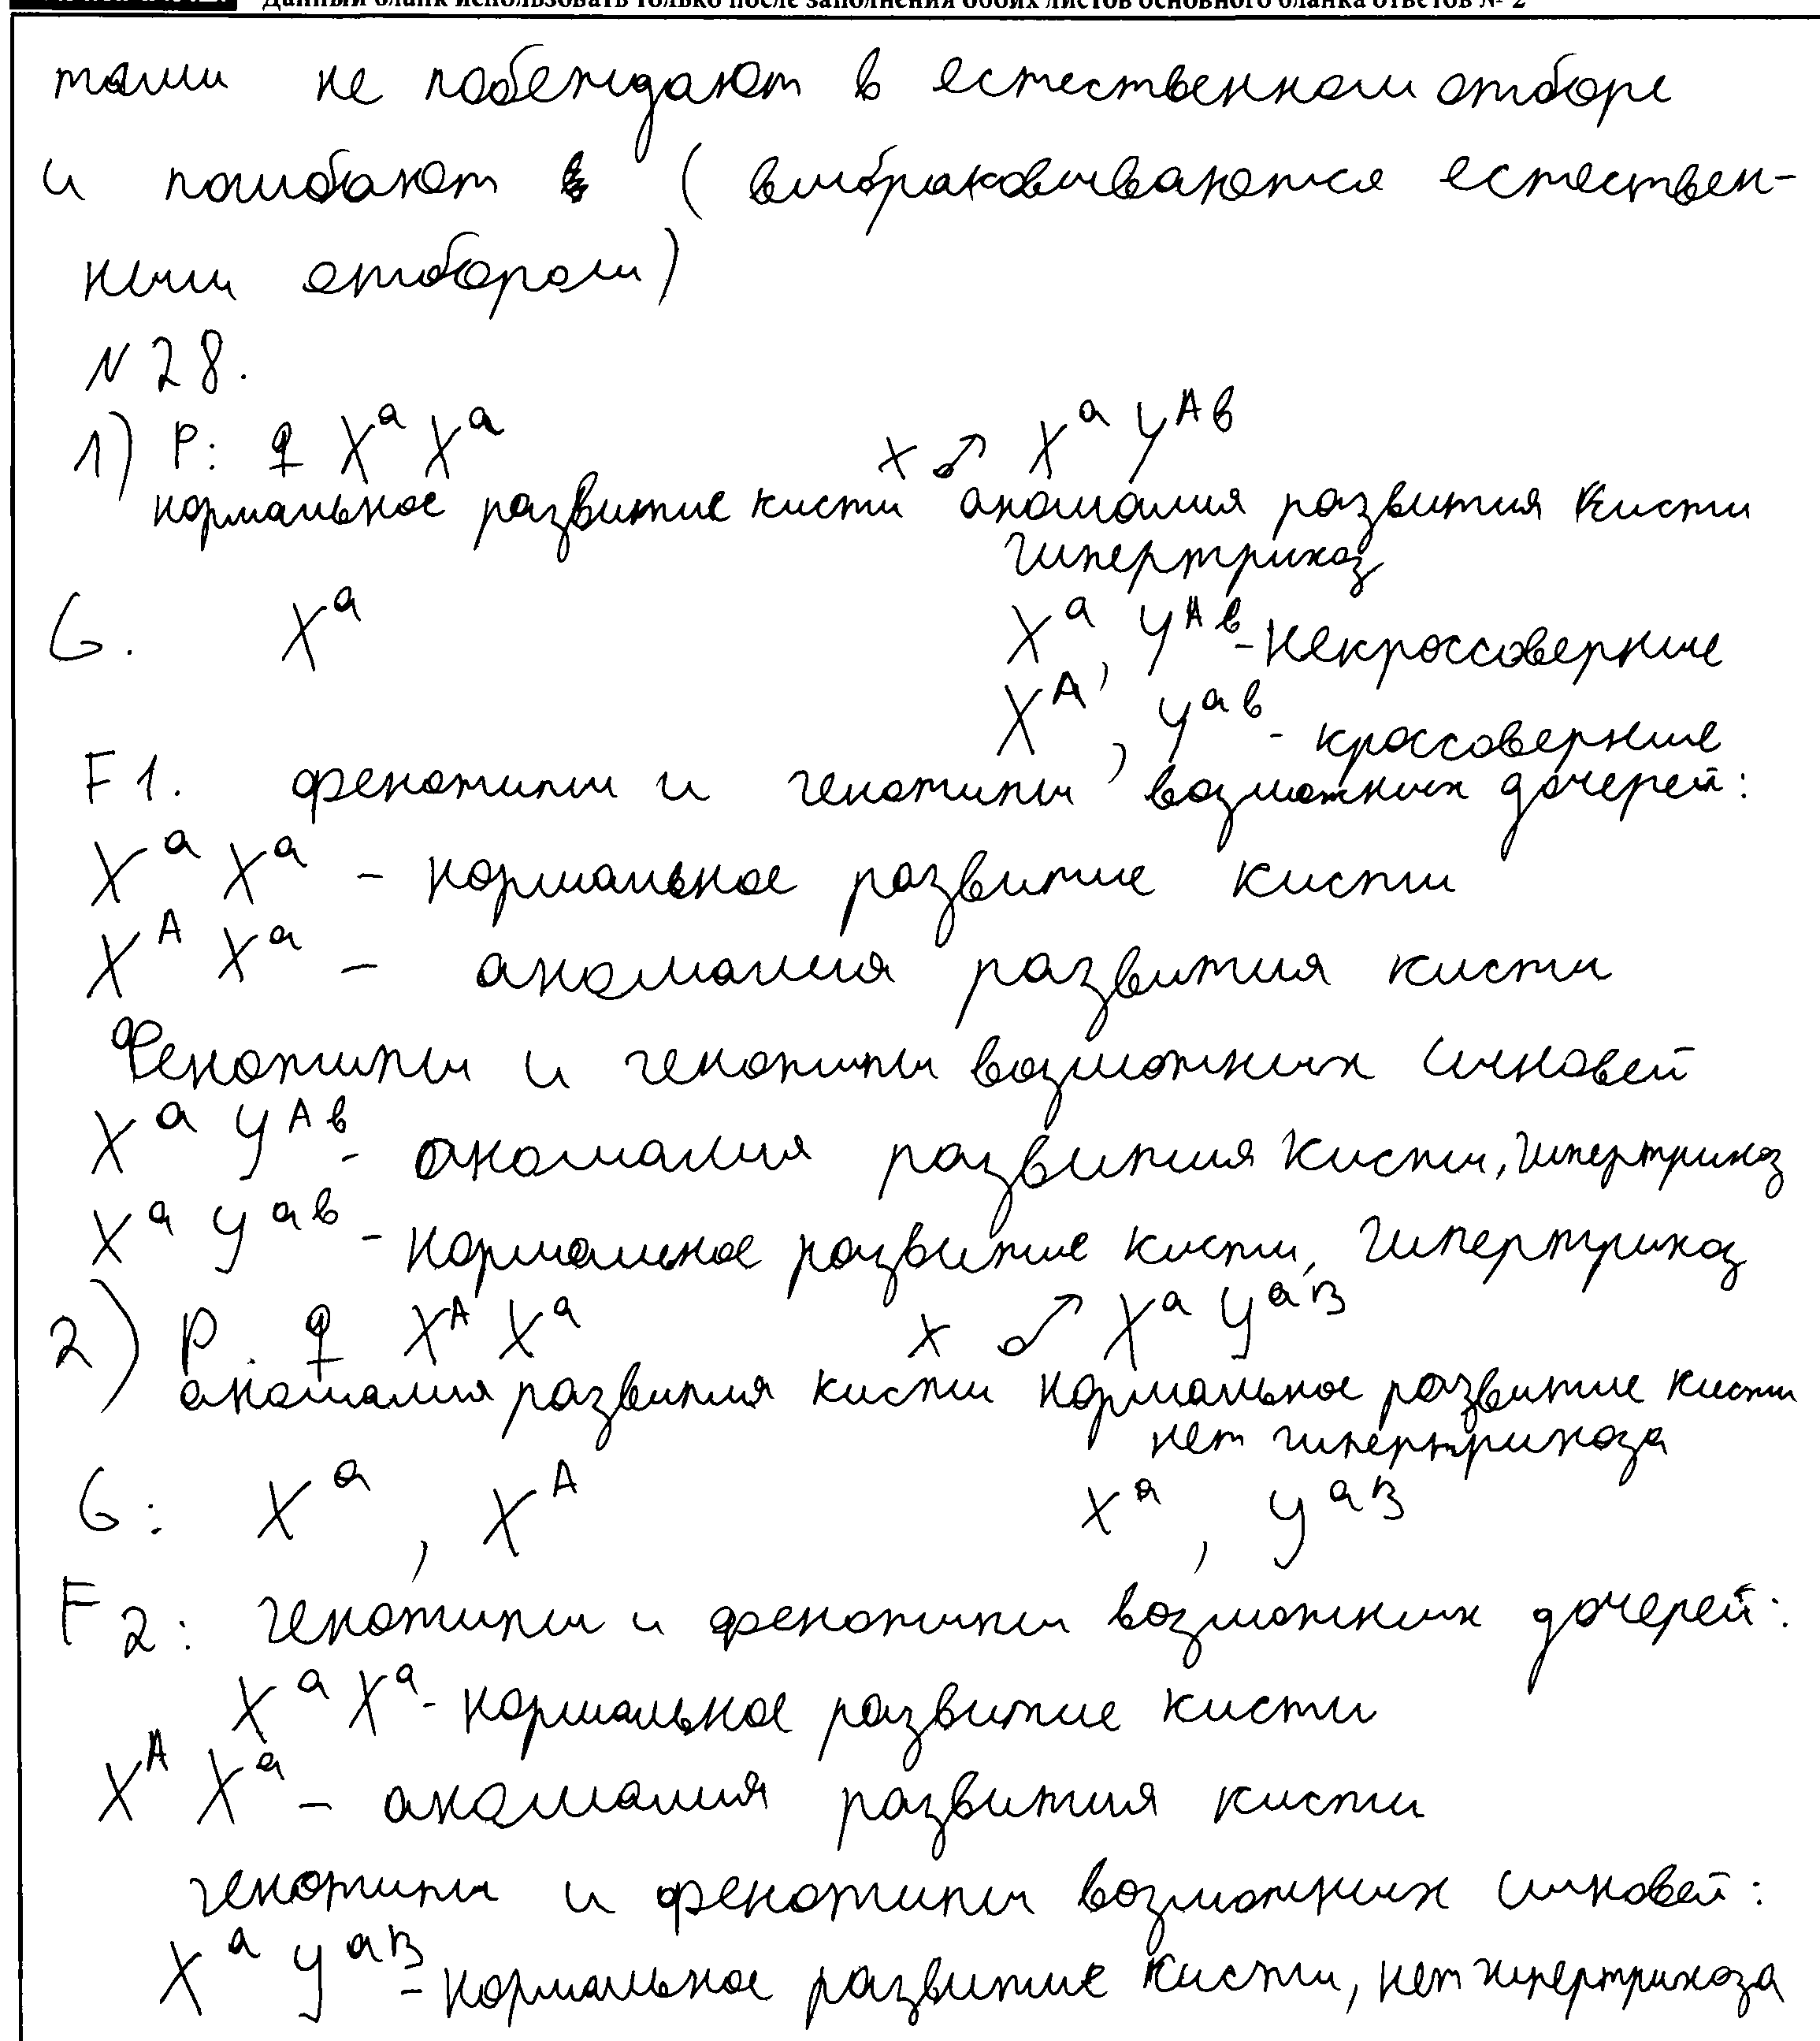 Данный бланк использовать только после заполнения обоих листов основного бланка ответов № 2
тами не побеждают в естественном отборе
и погибают (выбраковываются естествен-
ным отбором)
N 28.
1) P: ♀ XᵃXᵃ x ♂ XᵃYᴬᵇ
нормальное развитие кисти аномалия развития кисти
гипертрихоз
G. Xᵃ Xᵃ, Yᴬᵇ - некроссоверные
Xᴬ, Yᵃᵇ - кроссоверные
F1. фенотипы и генотипы возможных дочерей:
XᵃXᵃ - нормальное развитие кисти
XᴬXᵃ - аномалия развития кисти
Фенотипы и генотипы возможных сыновей
XᵃYᴬᵇ - аномалия развития кисти, гипертрихоз
XᵃYᵃᵇ - нормальное развитие кисти, гипертрихоз
2) P. ♀ XᴬXᵃ x ♂ XᵃYᵃᴮ
аномалия развития кисти нормальное развитие кисти
нет гипертрихоза
G: Xᵃ, Xᴬ Xᵃ, Yᵃᴮ
F2: генотипы и фенотипы возможных дочерей:
XᵃXᵃ - нормальное развитие кисти
XᴬXᵃ - аномалия развития кисти
генотипы и фенотипы возможных сыновей:
XᵃYᵃᴮ - нормальное развитие кисти, нет гипертрихоза